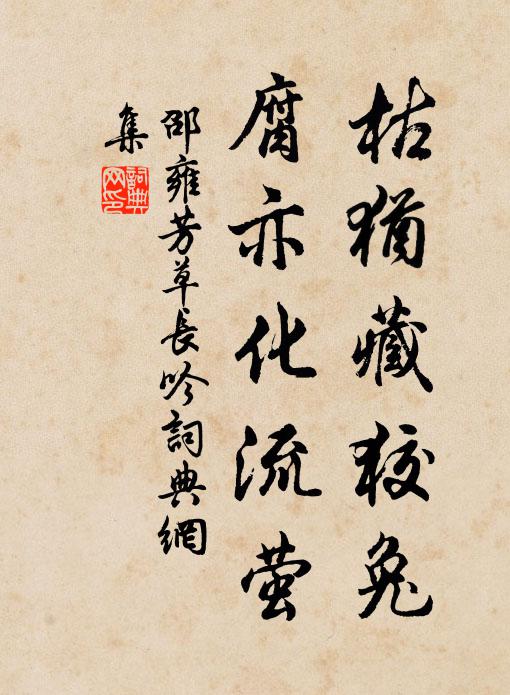 枯猶藏狡兔
腐亦化流萤
邵雍芳草長吟詞典網
集
詞典
网印